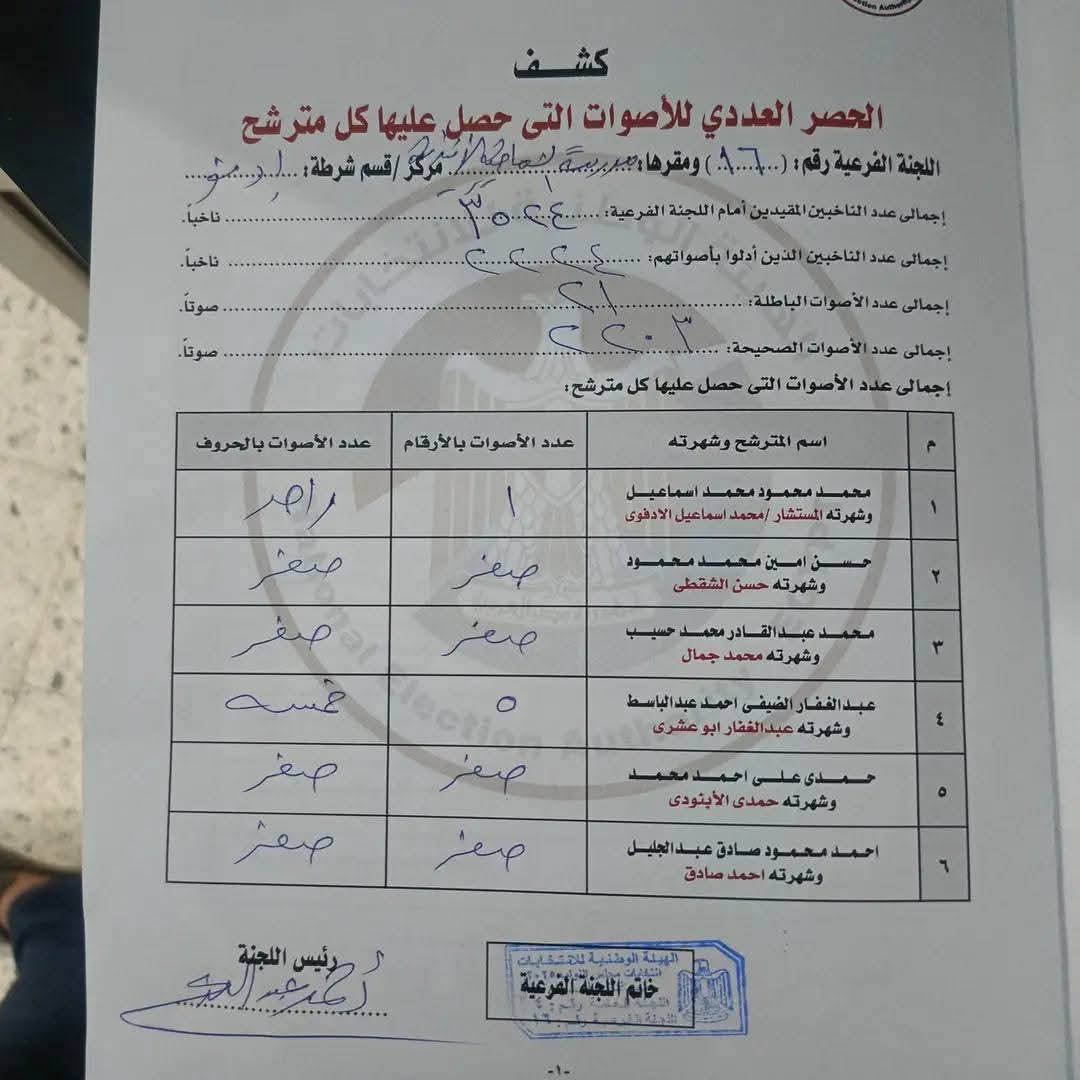 ction Authority
كشف
الحصر العددي للأصوات التى حصل عليها كل مترشح
اللجنة الفرعية رقم: (٩٦) ومقرها: مدرسة مركز/قسم شرطة: إدفو
إجمالى عدد الناخبين المقيدين أمام اللجنة الفرعية: ناخباً.
إجمالى عدد الناخبين الذين أدلوا بأصواتهم: ٢٢٢٤ ناخباً.
إجمالى عدد الأصوات الباطلة: ٢١ صوتاً.
إجمالى عدد الأصوات الصحيحة: ٢٢٠٣ صوتاً.
إجمالى عدد الأصوات التى حصل عليها كل مترشح:
م اسم المترشح وشهرته عدد الأصوات بالأرقام عدد الأصوات بالحروف
١ محمد محمود محمد اسماعيل ١ واحد
وشهرته المستشار /محمد اسماعيل الادفوى
٢ حسن امين محمد محمود صفر صفر
وشهرته حسن الشقطى
٣ محمد عبدالقادر محمد حسيب صفر صفر
وشهرته محمد جمال
٤ عبدالغفار الضيفى احمد عبدالباسط ٥ خمسه
وشهرته عبدالغفار ابو عشرى
٥ حمدى على احمد محمد صفر صفر
وشهرته حمدى الأبنودى
٦ احمد محمود صادق عبدالجليل صفر صفر
وشهرته احمد صادق
رئيس اللجنة
الهيئة الوطنية للانتخابات
خاتم اللجنة الفرعية
-١-